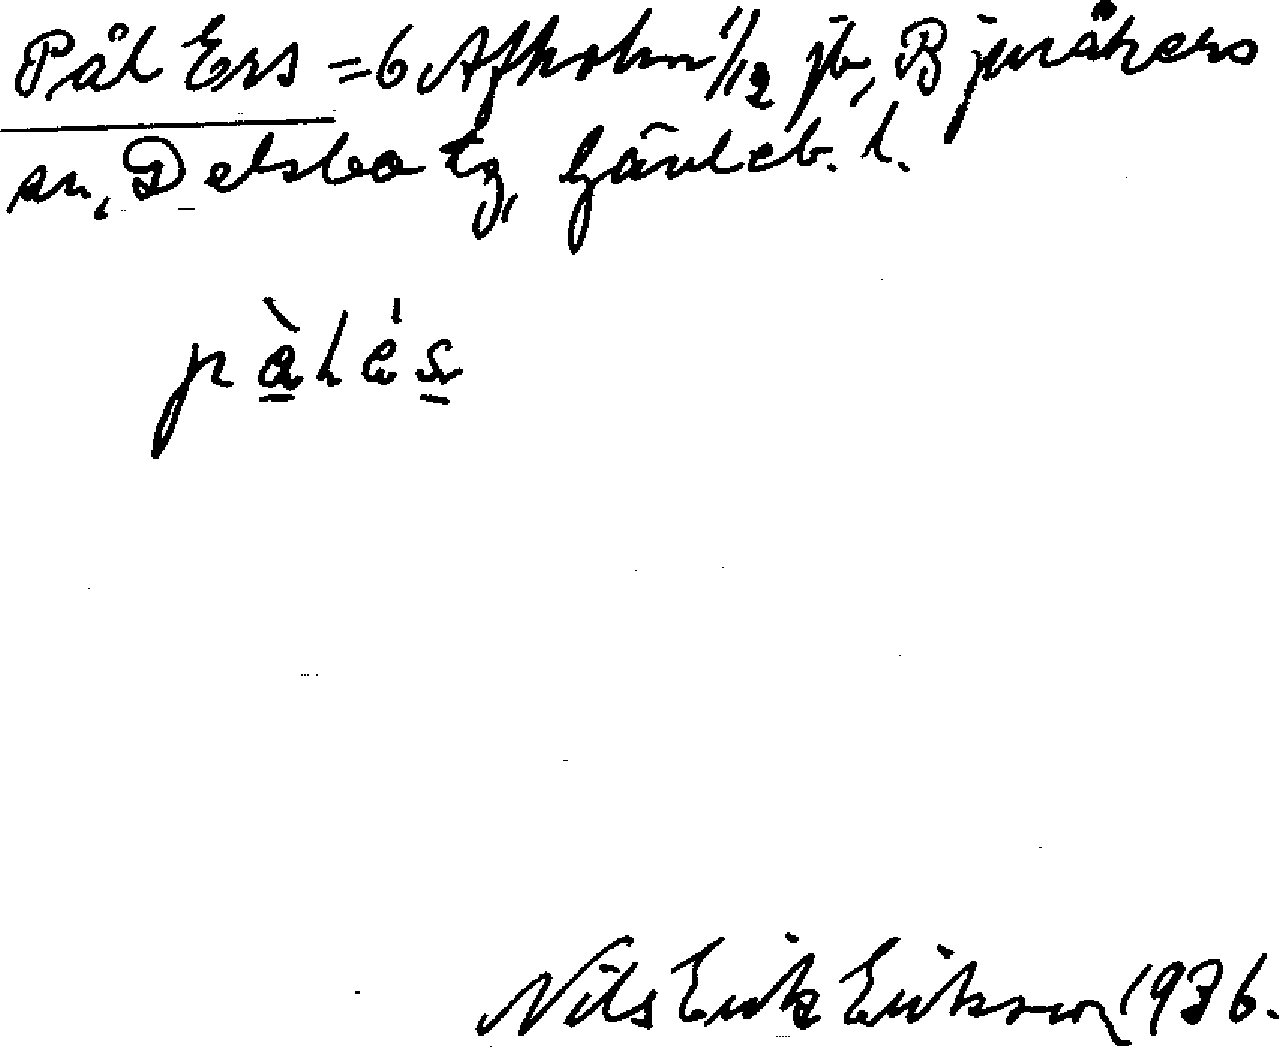 Pål Ers = 6 Afholm 1/12 jb, Bjuråkers
sn, Delsbo tg, Gävleb. l.
pàlés
Nils Erik Erikson 1936.